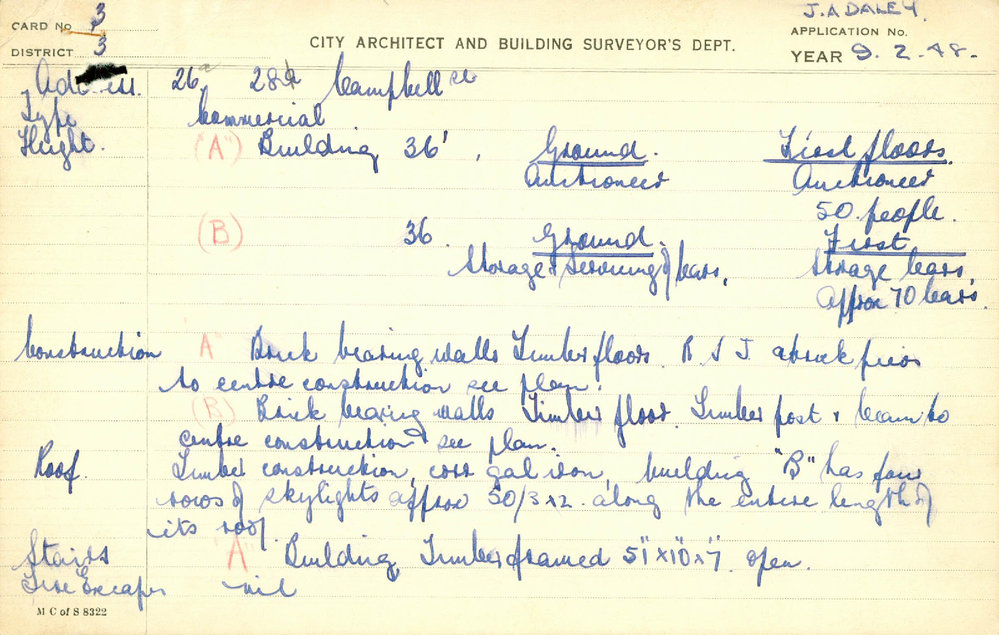 3
J.A DALEY.
CARD No 3
APPLICATION No.
DISTRICT 3
CITY ARCHITECT AND BUILDING SURVEYOR'S DEPT.
YEAR 9.2.48.
Address 26 28 Campbell st
Type Commercial
Height. ("A") Building 36', Ground. First floors.
Auctioneer Auctioneer
50 people.
(B) 36. Ground. First
Storage & Servicing of cars, Storage cars,
Approx 70 cars.
Construction A" Brick bearing walls Timber floors. R S J. & brick piers
to centre construction see plan.
(B) Brick bearing walls Timber floor. Timber post & beam to
centre construction see plan.
Roof. Timber construction, corr gal iron, building "B" has four
rows of skylights approx 50/3 x 2. along the entire length of
its roof.
Stairs "A" Building Timber framed 51" x 10" x 7" open.
Fire Escapes nil
M C of S 8322